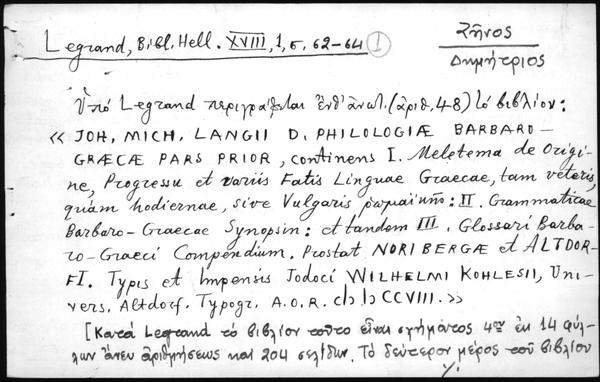 Legrand, Bibl. Hell. XVIII, 1, σ. 62-64 ①
Ζῆνος
Δημήτριος
Ὑπό Legrand περιγράφεται ἐνθ' ἀνωτ. (ἀριθ. 48) τό βιβλίον:
« JOH. MICH. LANGII D. PHILOLOGIÆ BARBARO-
GRÆCÆ PARS PRIOR, continens I. Meletema de Origi-
ne, Progressu et variis Fatis Linguae Graecae, tam veteris,
quàm hodiernae, sive Vulgaris ῥωμαικῆς: II. Grammaticae
Barbaro-Graecae Synopsin: et tandem III. Glossari Barba-
ro-Graeci Compendium. Prostat NORIBERGÆ et ALTDOR-
FI. Typis et Impensis Jodoci WILHELMI KOHLESII, Uni-
vers. Altdorf. Typogr. A.O.R. cIɔ Iɔ CCVIII. »
[Κατά Legrand τό βιβλίον τοῦτο εἶναι σχήματος 4ου ἐκ 14 φύλ-
λων ἄνευ ἀριθμήσεως καί 204 σελίδων. Τό δεύτερον μέρος τοῦ βιβλίου